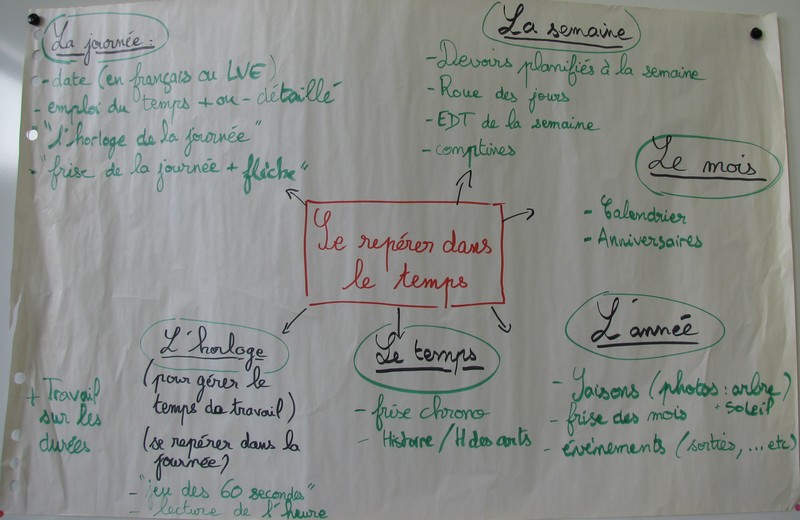 La journée :
- date (en français ou LVE)
- emploi du temps + ou - détaillé
- "l'horloge de la journée"
- "frise de la journée + flèche"
La semaine
- Devoirs planifiés à la semaine
- Roue des jours
- EDT de la semaine
- comptines
Le mois
- Calendrier
- Anniversaires
Se repérer dans
le temps
L'horloge
(pour gérer le
temps de travail)
(se repérer dans la
journée)
- "jeu des 60 secondes"
- lecture de l'heure
+ Travail
sur les
durées
Le temps
- frise chrono
- Histoire / H des arts
L'année
- Saisons (photos : arbre)
+ soleil
- frise des mois
- événements (sorties, ... etc)